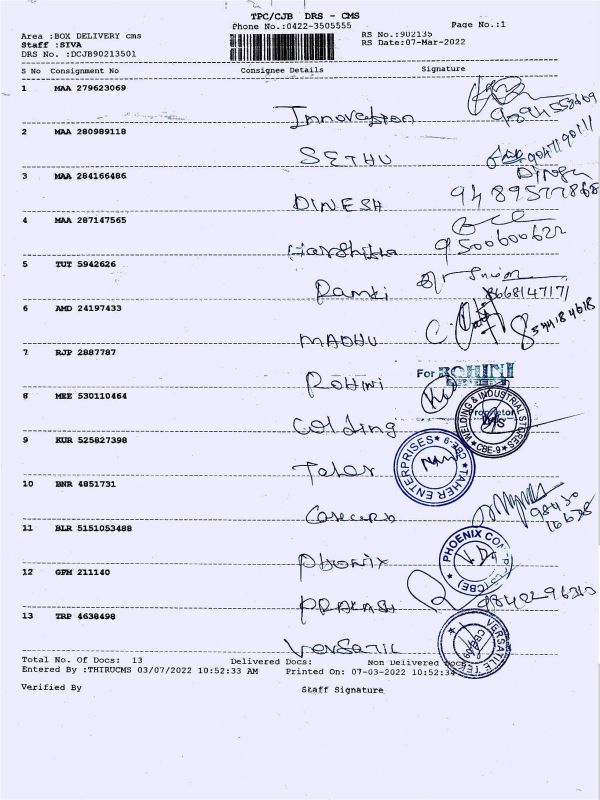 TPC/CJB DRS - CMS
Phone No.:0422-3505555
Page No.:1
Area :BOX DELIVERY cms
RS No.:902135
Staff :SIVA
RS Date:07-Mar-2022
DRS No. :DCJB90213501
S No Consignment No Consignee Details Signature
1 MAA 279623069
Innovation
2 MAA 280989118
SETHU
3 MAA 284166486
DINESH 9489577868
4 MAA 287147565
9500600622
5 TUT 5942626
Ramki 8668147171
6 AMD 24197433
MADHU
7 RJP 2887787
Rohini
For ROHINI
8 MEE 530110464
Colding
WELDING & INDUSTRIAL STORES CBE-9
9 KUR 525827398
TAHER ENTERPRISES CBE-9
10 BNR 4851731
11 BLR 5151053488
Phonix
PHOENIX (CBE)
12 GPM 211140
PRAKASH
13 TRP 4638498
Versatil
VERSATILE
Total No. Of Docs: 13 Delivered Docs: Non Delivered Docs:
Entered By :THIRUCMS 03/07/2022 10:52:33 AM Printed On: 07-03-2022 10:52:34
Verified By Staff Signature